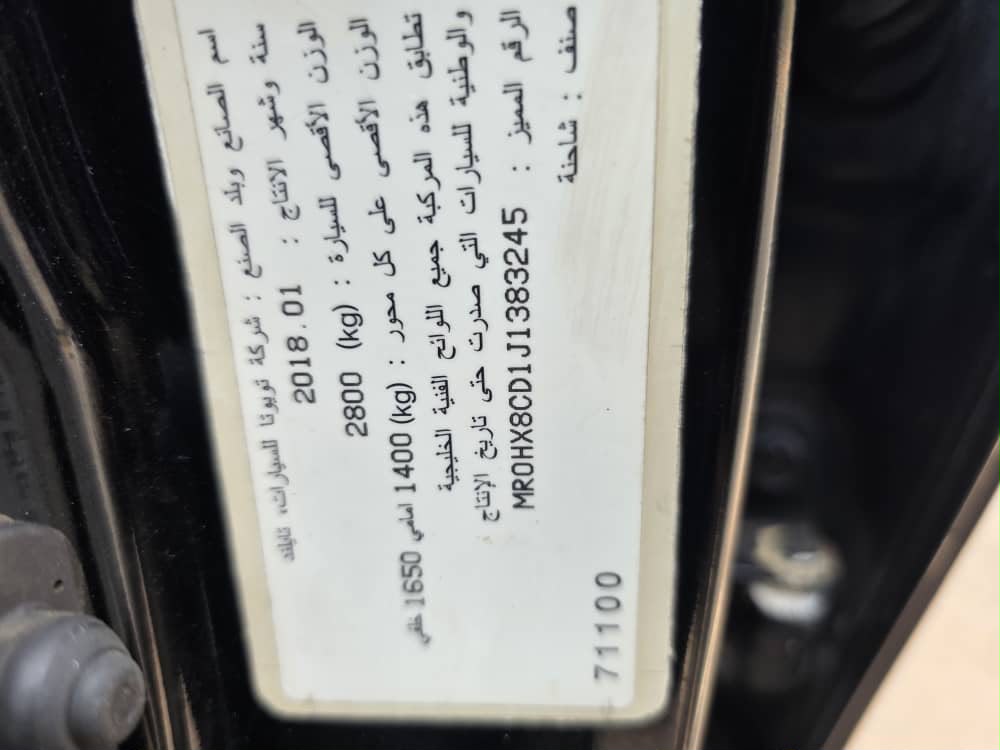 اسم الصانع وبلد الصنع : شركة تويوتا للسيارات، تايلند
سنة وشهر الانتاج : 2018.01
الوزن الأقصى للسيارة : 2800 (kg)
الوزن الاقصى على كل محور : 1400 (kg) امامي 1650 خلفي
تطابق هذه المركبة جميع اللوائح الفنية الخليجية
والوطنية للسيارات التي صدرت حتى تاريخ الإنتاج
الرقم المميز : MR0HX8CD1J1383245
صنف : شاحنة
71100